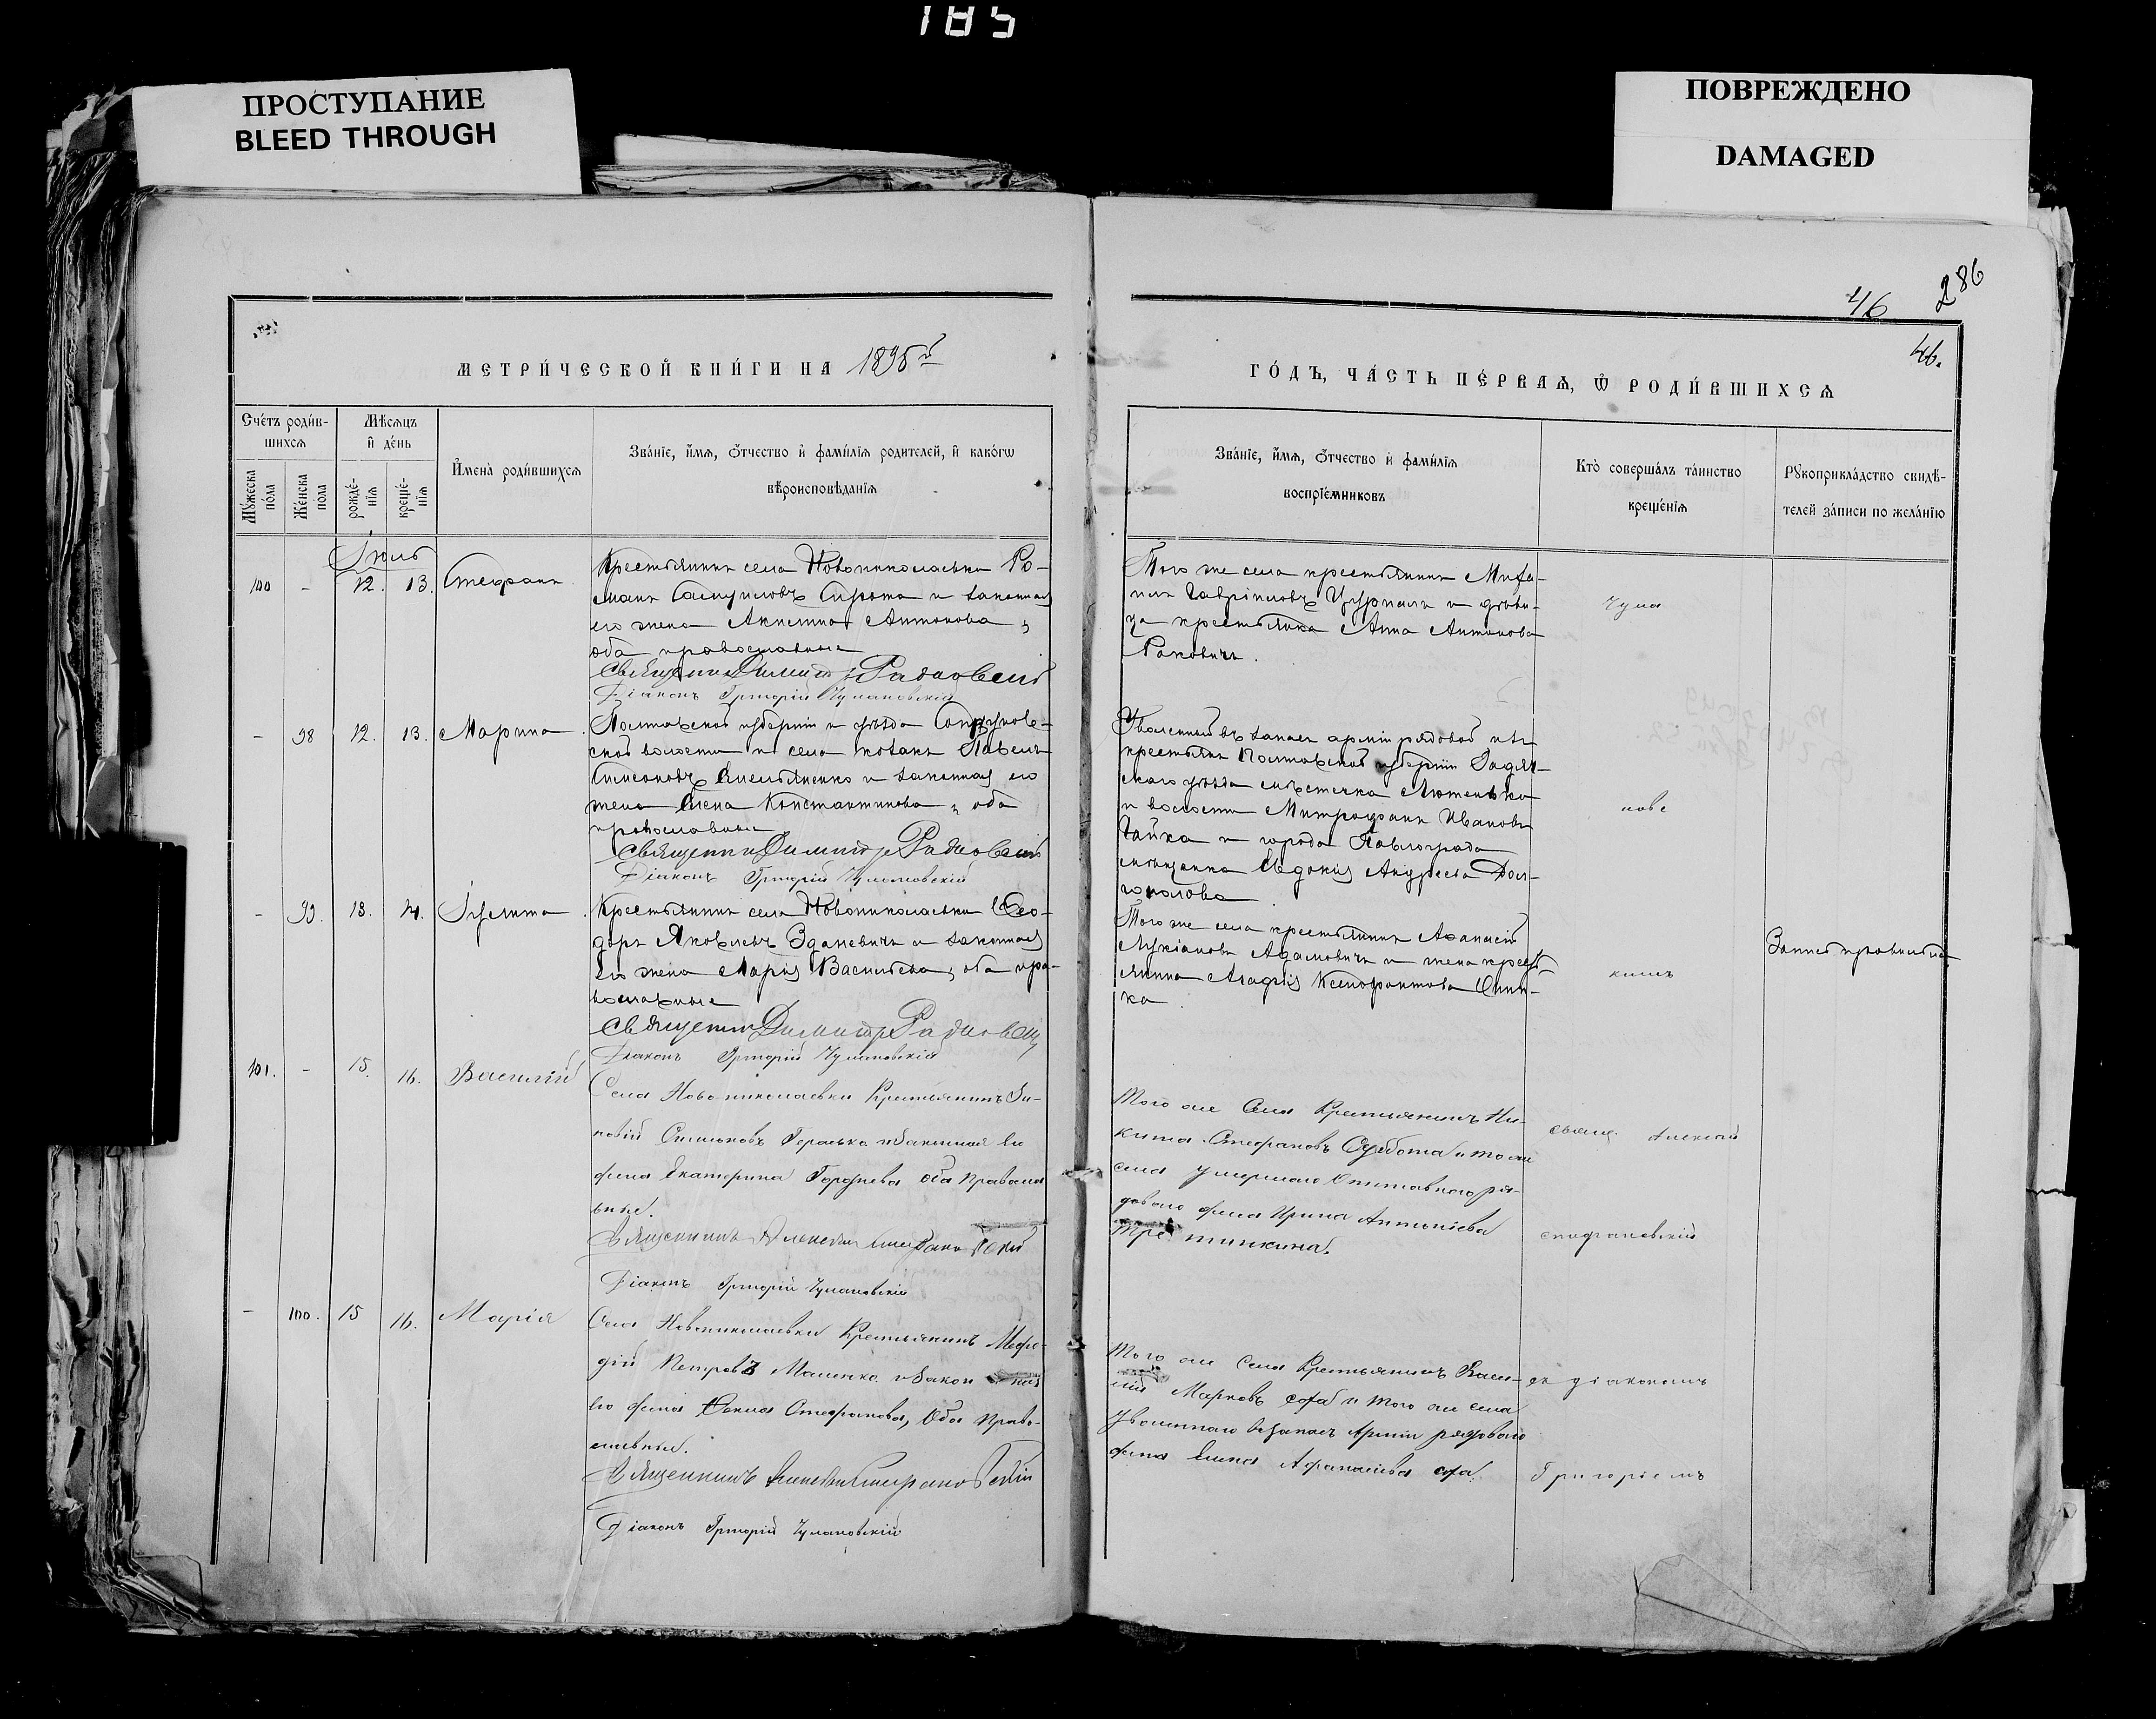 185
ПРОСТУПАНИЕ
BLEED THROUGH
ПОВРЕЖДЕНО
DAMAGED
286
46
46.
МЕТРИ́ЧЕСКОЙ КНИ́ГИ НА 1895й
ГО́ДЪ, ЧА́СТЬ ПЕ́РВАѦ, Ѡ҆ РОДИ́ВШИХСѦ
Сче́тъ роди́в-
шихсѧ
Мꙋ́жеска
по́ла
Же́нска
по́ла
Мѣ́сѧцъ
и҆ де́нь
рожде́-
нїѧ
креще́-
нїѧ
И҆мена̀ роди́вшихсѧ
Зва́нїе, и҆́мѧ, ѻ҆́тчество и҆ фами́лїѧ родителей, и҆ како́гѡ
вѣроисповѣ́данїѧ
Зва́нїе, и҆́мѧ, ѻ҆́тчество и҆ фами́лїѧ
воспрїе́мниковъ
Кто̀ соверша́лъ та́инство
креще́нїѧ
Рꙋкоприкла́дство свидѣ́-
телей за́писи по жела́нїю
Іюль
100 - 12. 13. Стефанъ
Крестьянинъ села Новониколаевки Ро-
манъ Самуиловъ Сирота и законная
его жена Акилина Антонова,
оба православные
Священникъ Димитр Радковский
Діаконъ Григорій Чумановскій
Того же села крестьянинъ Миха-
илъ Гавріиловъ и дѣви-
ца крестьянка Анна Антонова
Раковичъ.
- 98 12. 13. Марина.
Полтавской губерніи и уѣзда
ской волости и села козакъ Павелъ
Симеоновъ Емельяненко и законная его
жена Елена Константинова, оба
православные
Священникъ Димитр Радковский
Діаконъ Григорій Чумановскій
Уволенный въ запасъ арміи рядовой изъ
крестьянъ Полтавской губерніи Гадяч-
скаго уѣзда мѣстечка Лютеньки
и волости Митрофанъ Ивановъ
Чайка и города Павлограда
мѣщанка Евдокія Андреева Дол-
гополова.
- 99. 13. 14. Іулита.
Крестьянинъ села Новониколаевки Ѳео-
доръ Яковлевъ Зданевичъ и законная
его жена Марія Васильева, оба пра-
вославные
Священникъ Димитр Радковский
Діаконъ Григорій Чумановскій
Того же села крестьянинъ Аѳанасій
Лукіановъ Адамовичъ и жена крест-
янина Агафія Ксенофонтова
кимъ
101. - 15. 16. Василій
Села Новониколаевки Крестьянинъ Зи-
новій Симеоновъ Гераська и Законная Его
жена Екатерина Гордѣева Оба Правосла
вные.
Священникъ Алексій Стефановский
Діаконъ Григорій Чумановскій
Того же Села Крестьянинъ Ни-
кита Стефановъ Суббота и того же
села умершаго Отставного ря-
дового жена Ирина Антоніева
свящ. Алексій
- 100. 15 16. Марія
Села Новониколаевки Крестьянинъ Мефо-
дій Петровъ и Законная
Его жена Стефанова, Оба Право-
славные.
Священникъ Алексій Стефановский
Діаконъ Григорій Чумановскій
Того же Села Крестьянинъ Васи-
лій Марковъ и того же села
Уволеннаго въ запасъ Арміи рядоваго
жена Елена Афанасіева
съ діакономъ
Григоріемъ